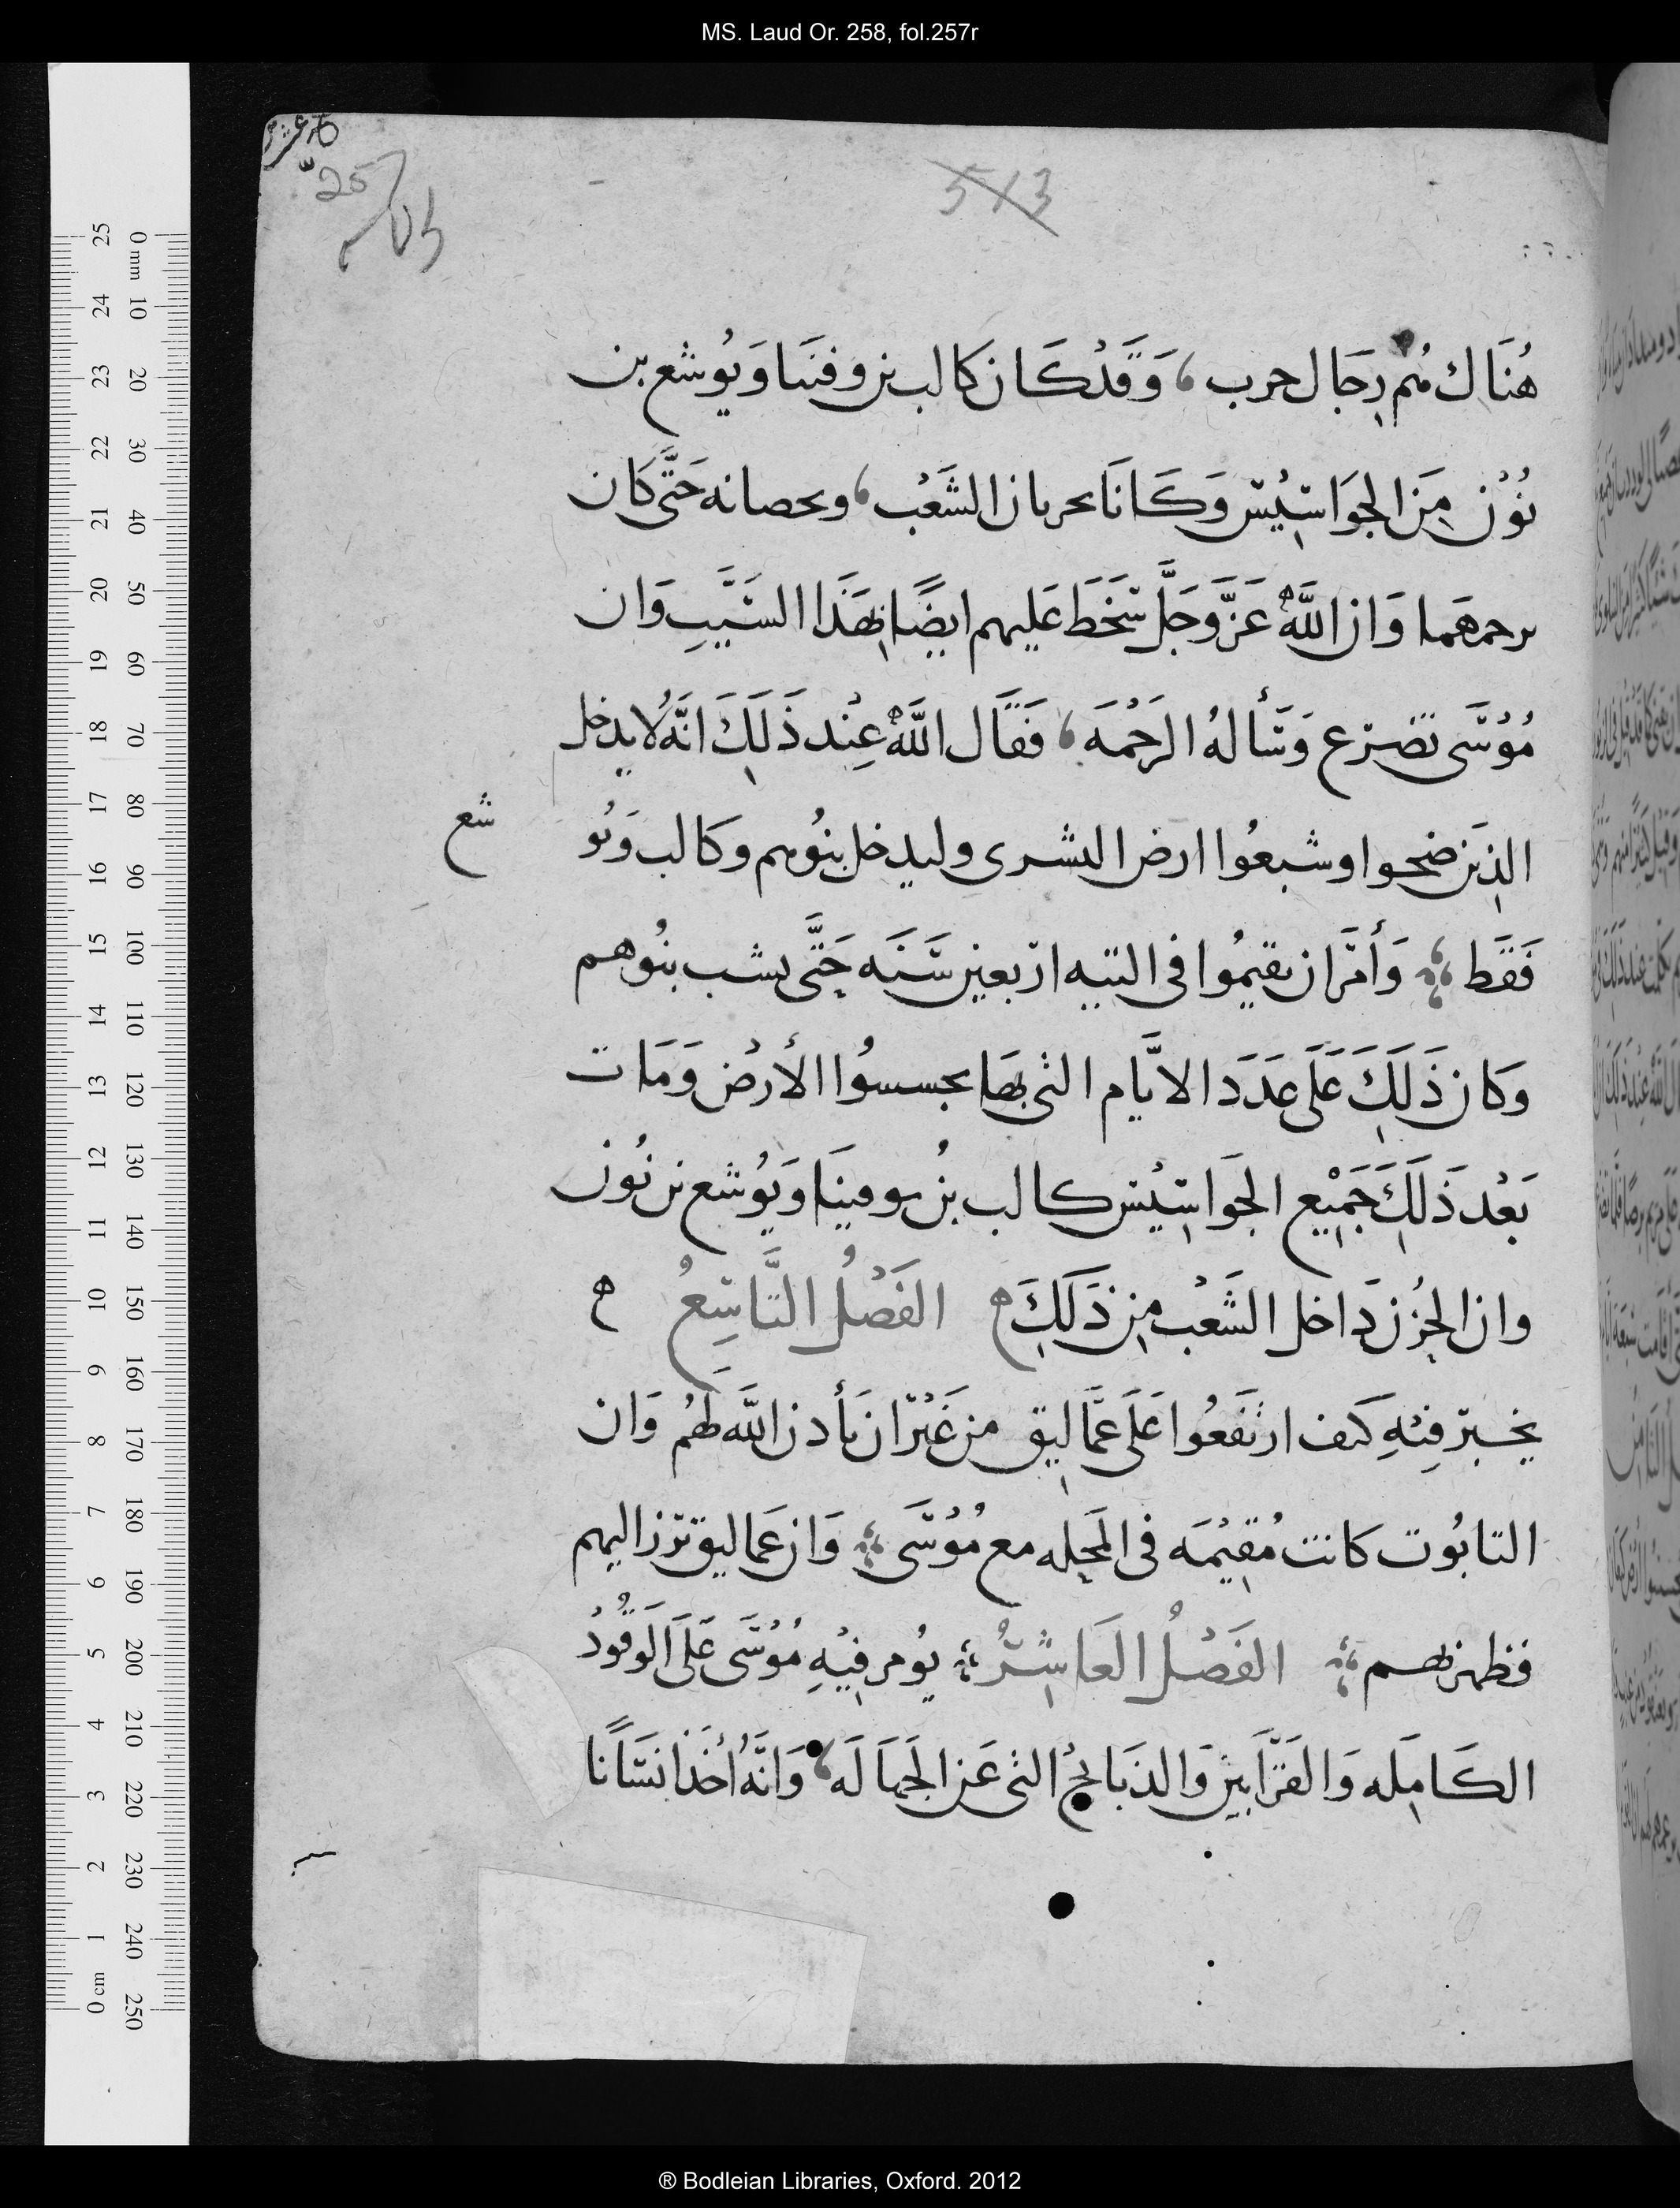 MS. Laud Or. 258, fol.257r
257
513
هُنَاك مُم رِجَال حرب، وَقَدْ كَان كالب بن وفنىا وَيُوشع بن
نُوْن مِنَ الجَوَاسِيْس وَكَانَا يحربان الشَّعْب، ويحصانه حَتَّى كَان
يرحمهَما وَان اللَّهُ عَزَّ وَجَلَّ سَخَطَ عَليهم ايضًا بِهَذَا السَّبَبِ وَان
مُوْسَى تضرع وَسَأَلهُ الرَحْمَه، فَقَال اللَّهُ عِنْد ذَلِكَ انَّهُ لَا يدخل
الذِين ضجوا وشبعُوا ارض البشرى وليدخل بنُوهم وكالب وَيُو
شع
فَقَط وَأمَر ان يقيمُوا فى التيه اربعين سَنَه حَتَّى يشب بنُوهم
وَكان ذَلِكَ عَلَى عَدَدَ الايَّام التى بهَا تجسسُوا الأرض وَمَات
بَعْد ذَلِكَ جَمِيْع الجَواسِيْس كالب بنُ يوفينَا وَيُوشع بن نُون
وان الحُزن دَاخل الشَّعْب مِن ذَلِكَ الفَصْلُ التَّاسِعُ
يخبر فِيْهِ كَيف ارتَفَعُوا عَلَى عَمَّالِيق من غَيْر ان يَأذن اللَّه لَهُم وَان
التابُوت كَانت مُقِيْمَه فى المَحِله مع مُوْسَى وَان عَماليق برز اليهم
فظهر بهم الفَصْلُ العَاشِرُ يُومر فِيْهِ مُوْسَى عَلَى الوَقُودُ
الكَامِلَه وَالقَرَابِيْن وَالذبَائحُ التى عَن الجَهَالَه، وَانَّهُ أخَذ انسَانًا
® Bodleian Libraries, Oxford. 2012